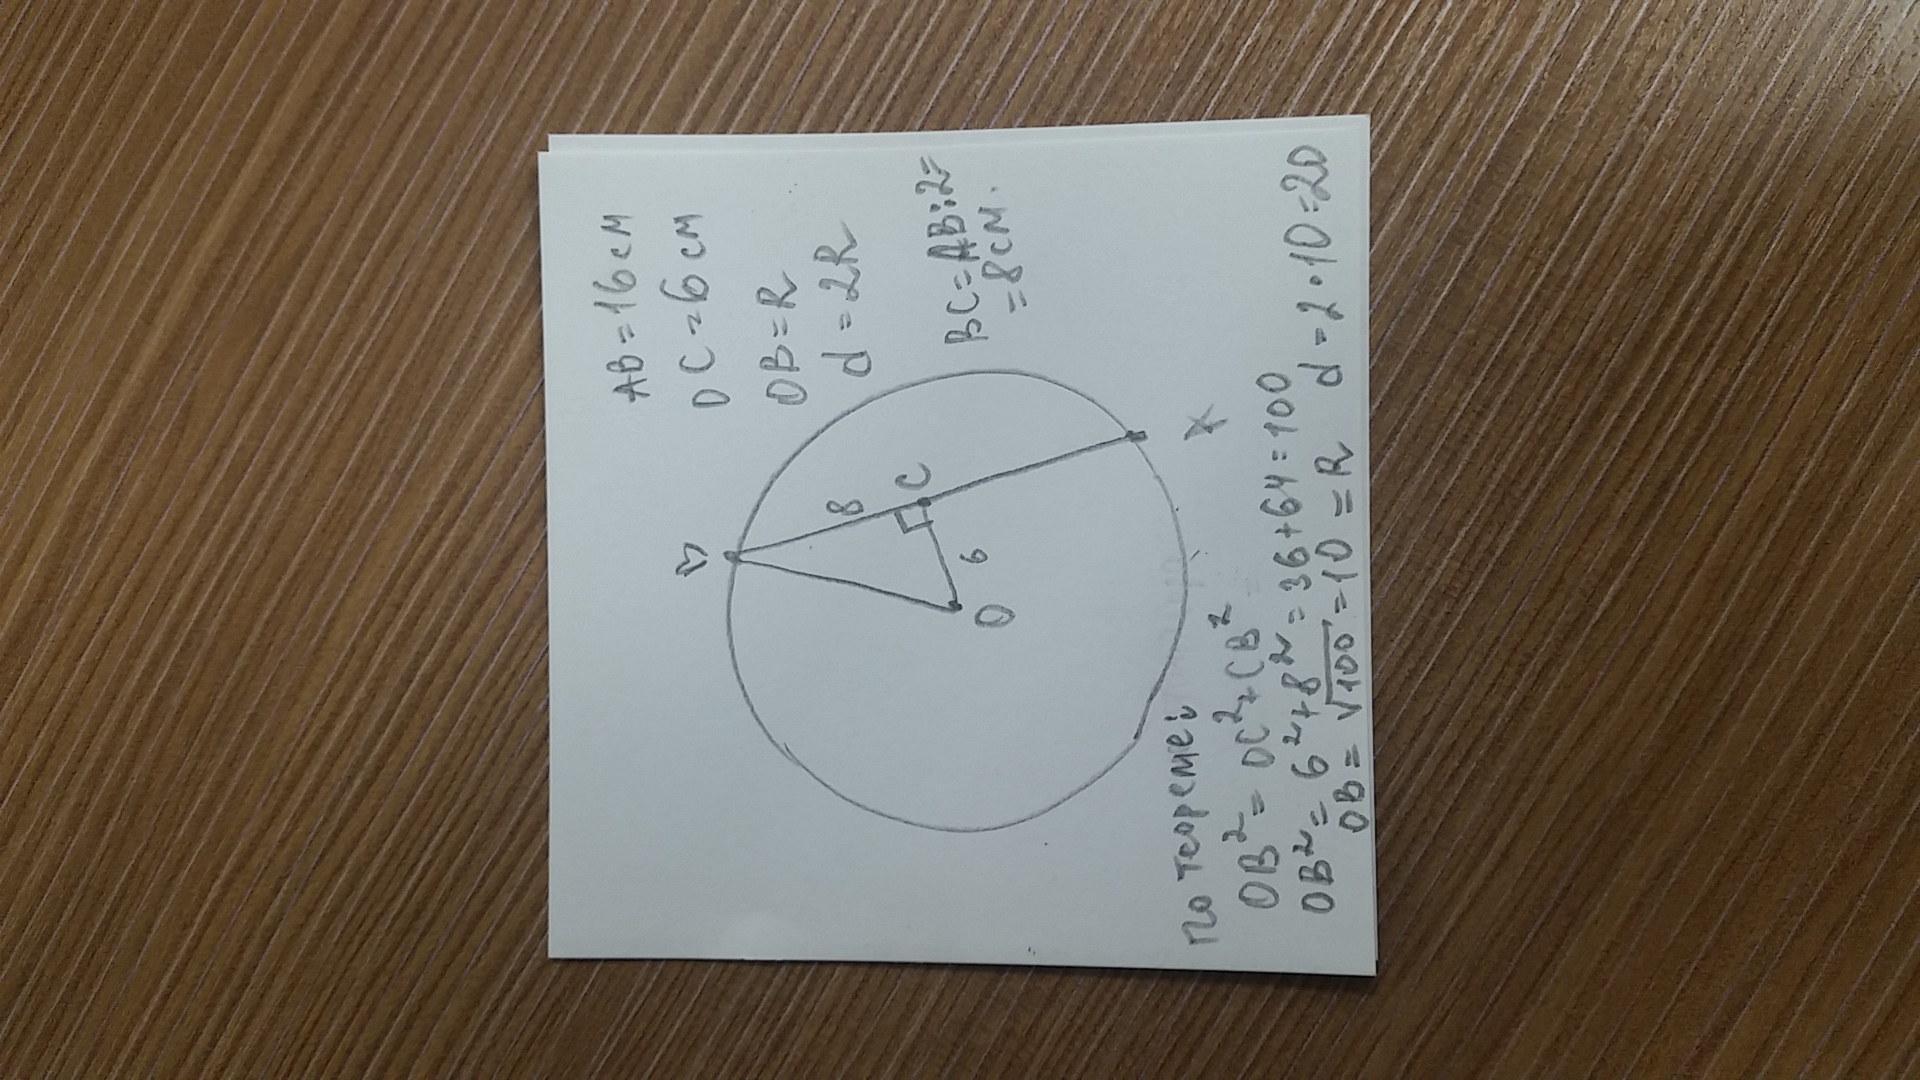 AB=16см
OC=6см
OB=R
d=2R
BC=AB:2=
=8см.
B
8
C
6
O
A
по теореме:
OB²=OC²+CB²
OB²=6²+8²=36+64=100
OB=√100=10=R d=2·10=20